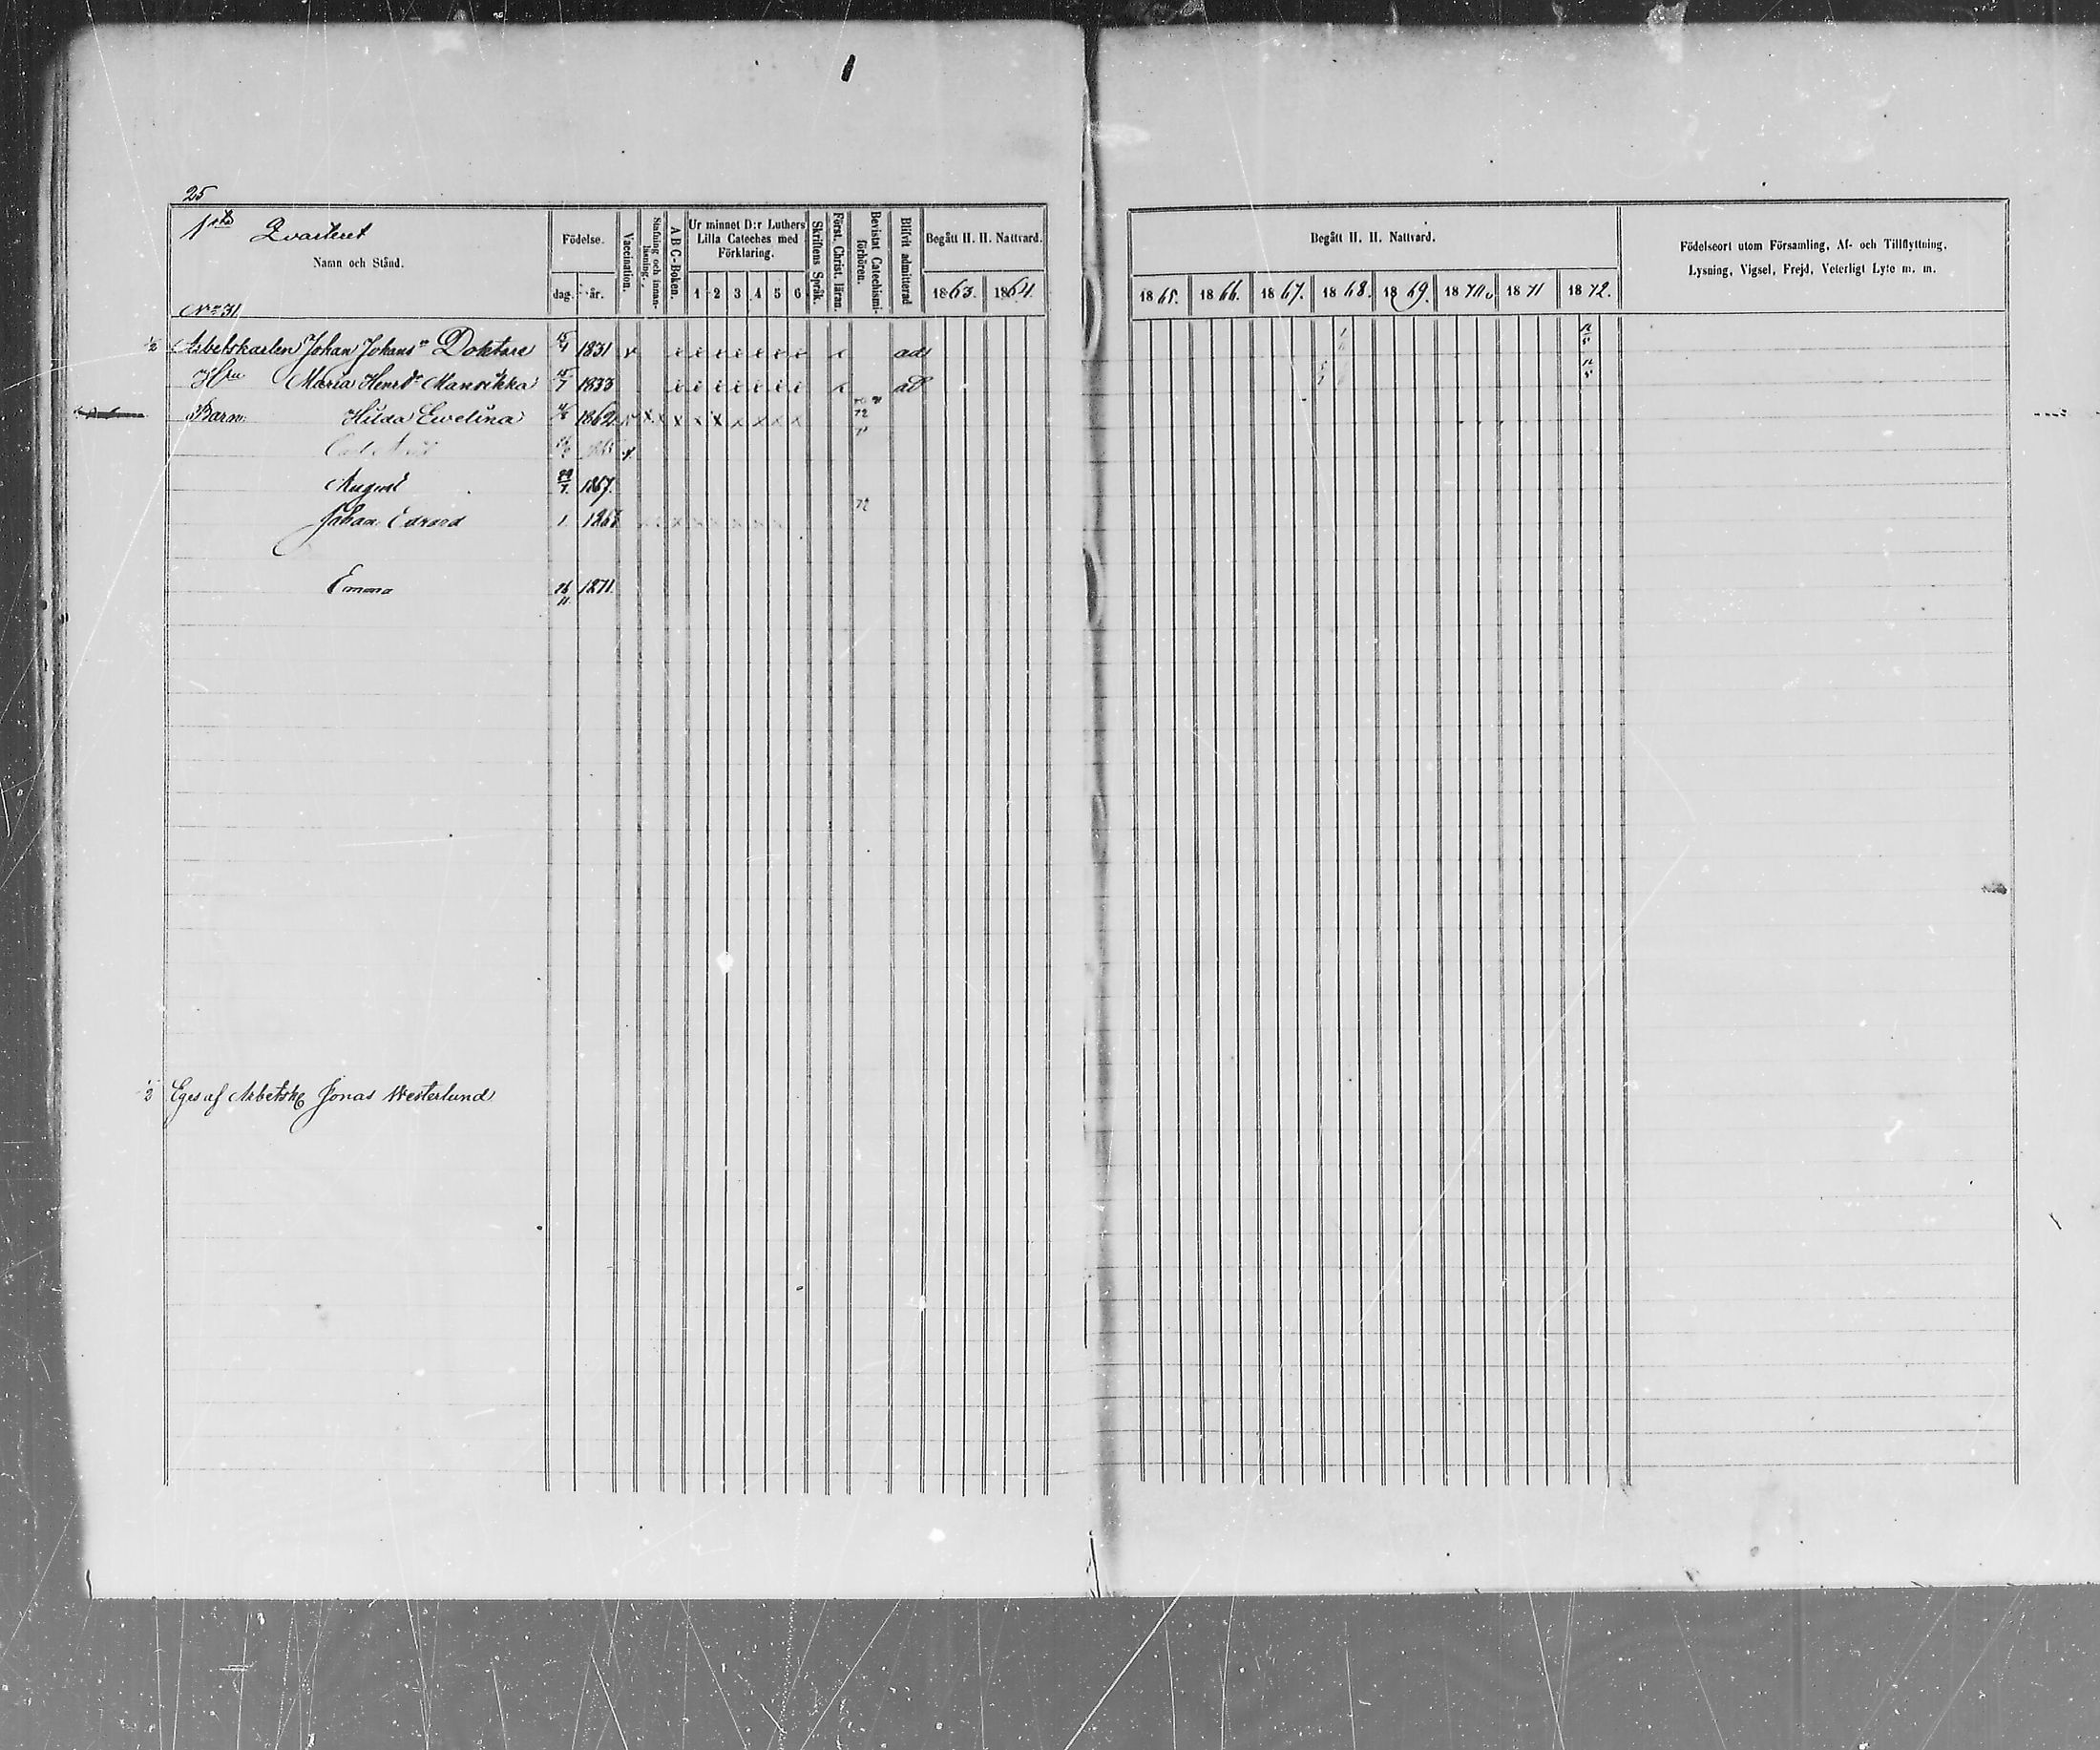 25
1sta Qvarteret
Namn och Stånd.
No 31
Födelse.
dag. år.
Vaccination.
Stafning och innanläsning.
A B C-Boken.
Ur minnet D:r Luthers Lilla Cateches med Förklaring.
1 2 3 4 5 6
Skriftens Språk.
Först. Christ. läran.
Bevistat Catechismiförhören.
Blifvit admitterad
Begått H. H. Nattvard.
1863. 1864.
Begått H. H. Nattvard.
1865. 1866. 1867. 1868. 1869. 1870. 1871 1872.
Födelseort utom Församling, Af- och Tillflyttning,
Lysning, Vigsel, Frejd, Veterligt Lyte m. m.
1/2 Arbetskarlen Johan Johans:n Doktare 1831 v ad
Hru Maria Henrd:r Mansikka 1833 ad
Barn: Hilda Ewelina 1862 v x x x x x x x x x 72
Carl
August 1867.
Johan Edvard 1 72
Emma 26/11 1871.
1/2 Eges af Arbetsk Jonas Westerlund